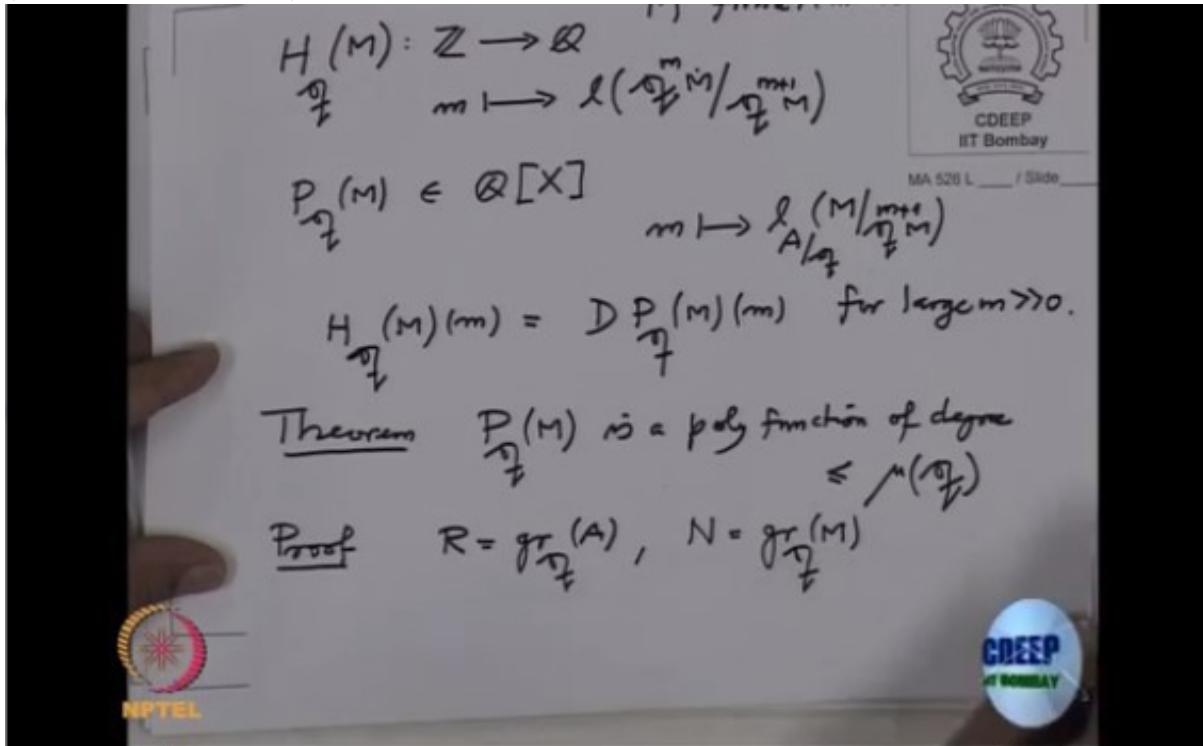 H_𝔮(M): ℤ ⟶ ℚ
m ⟼ l(𝔮^m M/𝔮^{m+1} M)
CDEEP
IIT Bombay
MA 526 L ____ / Slide____
P_𝔮(M) ∈ ℚ[X]
m ⟼ l_{A/𝔮}(M/𝔮^{m+1} M)
H_𝔮(M)(m) = D P_𝔮(M)(m) for large m >> 0.
Theorem P_𝔮(M) is a poly function of degree
≤ μ(𝔮)
Proof R = gr_𝔮(A), N = gr_𝔮(M)
NPTEL
CDEEP
IIT BOMBAY